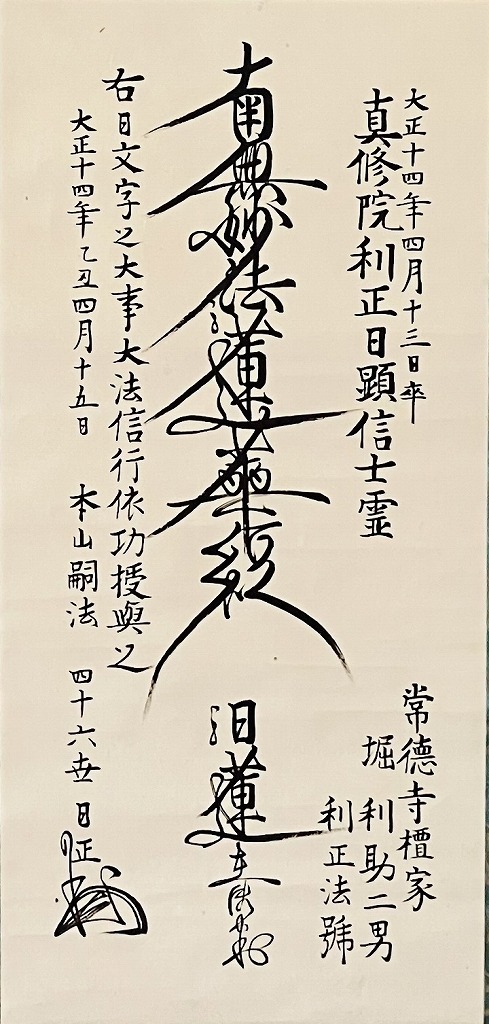 大正十四年四月十三日卒
真修院利正日顕信士霊
常徳寺檀家
堀 利助二男
利正法號
南無妙法蓮華経
日蓮
右日文字之大事大法信行依功授與之
大正十四年乙丑四月十五日 本山嗣法 四十六世 日正